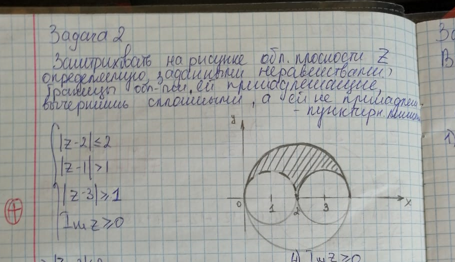 Задача 2
Заштриховать на рисунке обл. плоскости Z
определенную заданными неравенствами
границы обл-ти, ей принадлежащие,
вычертить сплошными, а ей не принадлеж.
- пунктирн.
|z-2|≤2
|z-1|>1
|z-3|≥1
Im z≥0
y
0 1 2 3 x
4) Im z≥0